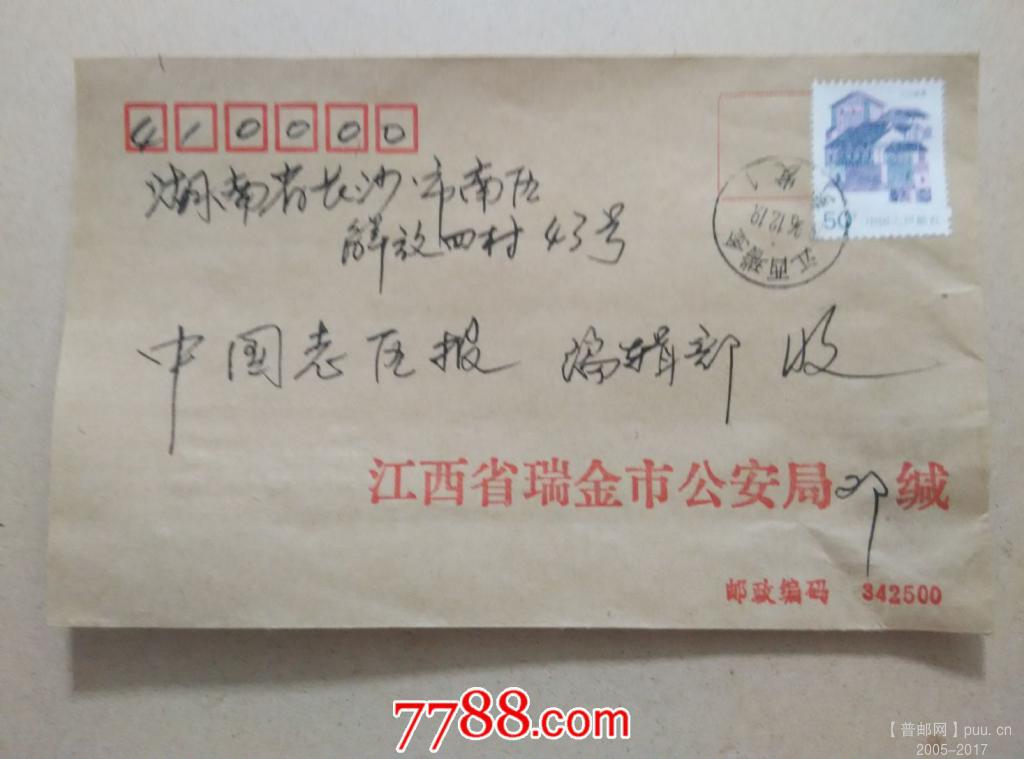 410000
湖南省长沙市南区
解放四村43号
50 中国人民邮政
江西瑞金
96.12.19
中国志区报 编辑部 收
江西省瑞金市公安局邓缄
邮政编码 342500
7788.com
【普邮网】puu.cn
2005-2017